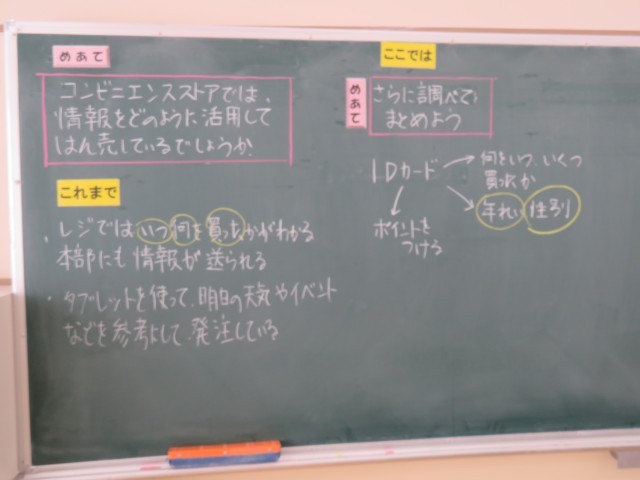 めあて
コンビニエンスストアでは、
情報をどのように活用して
はん売しているでしょうか。
これまで
・レジではいつ何を買ったかがわかる
本部にも情報が送られる
・タブレットを使って、明日の天気やイベント
などを参考にして、発注している
ここでは
めあて
さらに調べて、
まとめよう
IDカード
何をいつ、いくつ
買ったか
年れい 性別
ポイントを
つける